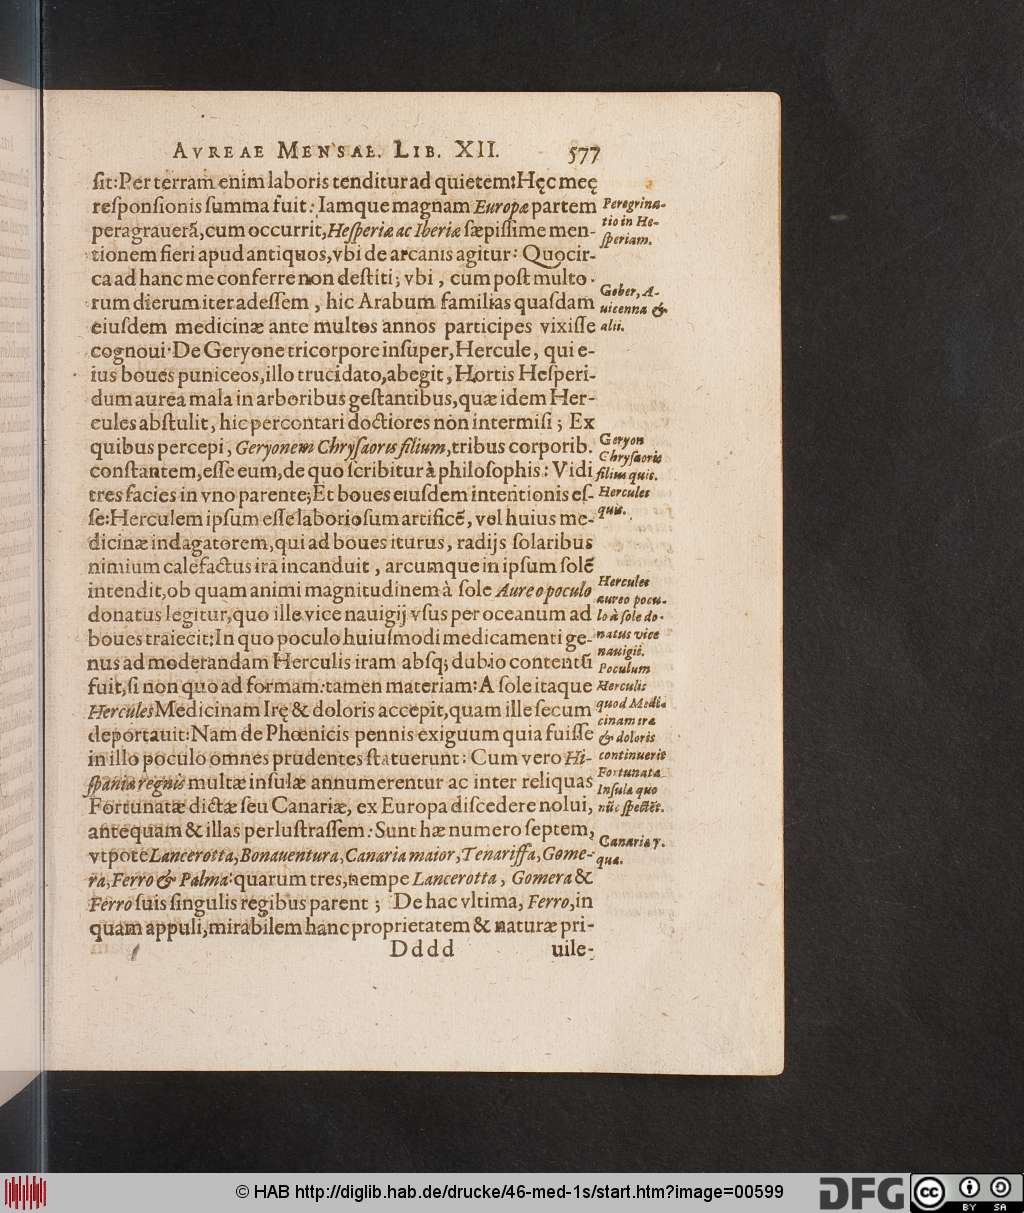 AVREAE MENSAE. LIB. XII. 577
ſit: Per terram enim laboris tenditur ad quietem: Hęc meę
reſponſionis ſumma fuit: Iamque magnam Europæ partem
peragrauerã, cum occurrit, Heſperiæ ac Iberiæ ſæpiſſime men-
tionem fieri apud antiquos, vbi de arcanis agitur: Quocir-
ca ad hanc me conferre non deſtiti; vbi, cum poſt multo-
rum dierum iter adeſſem, hic Arabum familias quaſdam
eiuſdem medicinæ ante multos annos participes vixiſſe
cognoui. De Geryone tricorpore inſuper, Hercule, qui e-
ius boues puniceos, illo trucidato, abegit, Hortis Heſperi-
dum aurea mala in arboribus geſtantibus, quæ idem Her-
cules abſtulit, hic percontari doctiores non intermiſi; Ex
quibus percepi, Geryonem Chryſaoris filium, tribus corporib.
conſtantem, eſſe eum, de quo ſcribitur à philoſophis: Vidi
tres facies in vno parente; Et boues eiuſdem intentionis eſ-
ſe: Herculem ipſum eſſe laborioſum artificẽ, vel huius me-
dicinæ indagatorem, qui ad boues iturus, radijs ſolaribus
nimium calefactus ira incanduit, arcumque in ipſum ſolẽ
intendit, ob quam animi magnitudinem à ſole Aureo poculo
donatus legitur, quo ille vice nauigij vſus per oceanum ad
boues traiecit: In quo poculo huiuſmodi medicamenti ge-
nus ad moderandam Herculis iram abſq; dubio contentũ
fuit, ſi non quo ad formam: tamen materiam: A ſole itaque
Hercules Medicinam Irę & doloris accepit, quam ille ſecum
deportauit: Nam de Phœnicis pennis exiguum quia fuiſſe
in illo poculo omnes prudentes ſtatuerunt: Cum vero Hi-
ſpaniæ regnis multæ inſulæ annumerentur ac inter reliquas
Fortunatæ dictæ ſeu Canariæ, ex Europa diſcedere nolui,
antequam & illas perluſtraſſem: Sunt hæ numero ſeptem,
vtpote Lancerotta, Bonauentura, Canaria maior, Tenariffa, Gome-
ra, Ferro & Palma: quarum tres, nempe Lancerotta, Gomera &
Ferro ſuis ſingulis regibus parent; De hac vltima, Ferro, in
quam appuli, mirabilem hanc proprietatem & naturæ pri-
Dddd uile-
Peregrina-
tio in He-
ſperiam.
Geber, A-
uicenna &
alii.
Geryon
Chryſaoris
filius quis.
Hercules
quis.
Hercules
aureo pocu-
lo à ſole do-
natus vice
nauigii.
Poculum
Herculis
quod Medi-
cinam iræ
& doloris
continuerit
Fortunata
Inſula quo
nũc ſpectẽt.
Canariæ 7.
quæ.
© HAB http://diglib.hab.de/drucke/46-med-1s/start.htm?image=00599
DFG
cc BY SA